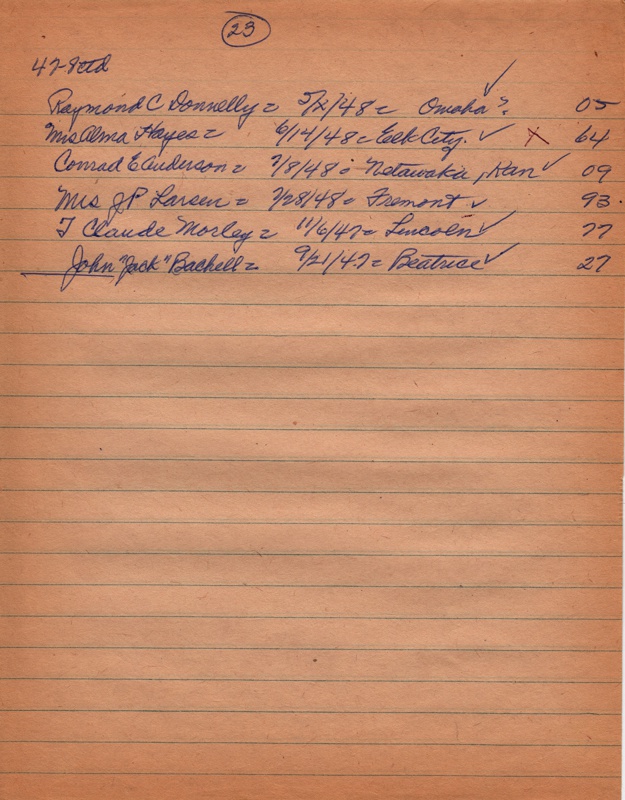 23
47-8ctd
Raymond C Donnelly = 5/2/48 = Omaha ? ✓ 05
Mrs Alma Hayes = 6/14/48 = Elk City. ✓ X 64
Conrad E Anderson = 7/8/48 = Netawaka, Kan ✓ 09
Mrs J P Larsen = 7/28/48 = Fremont ✓ 93.
T Claude Morley = 11/6/47 = Lincoln ✓ 77
John "Jack" Bachell = 9/21/47 = Beatrice ✓ 27